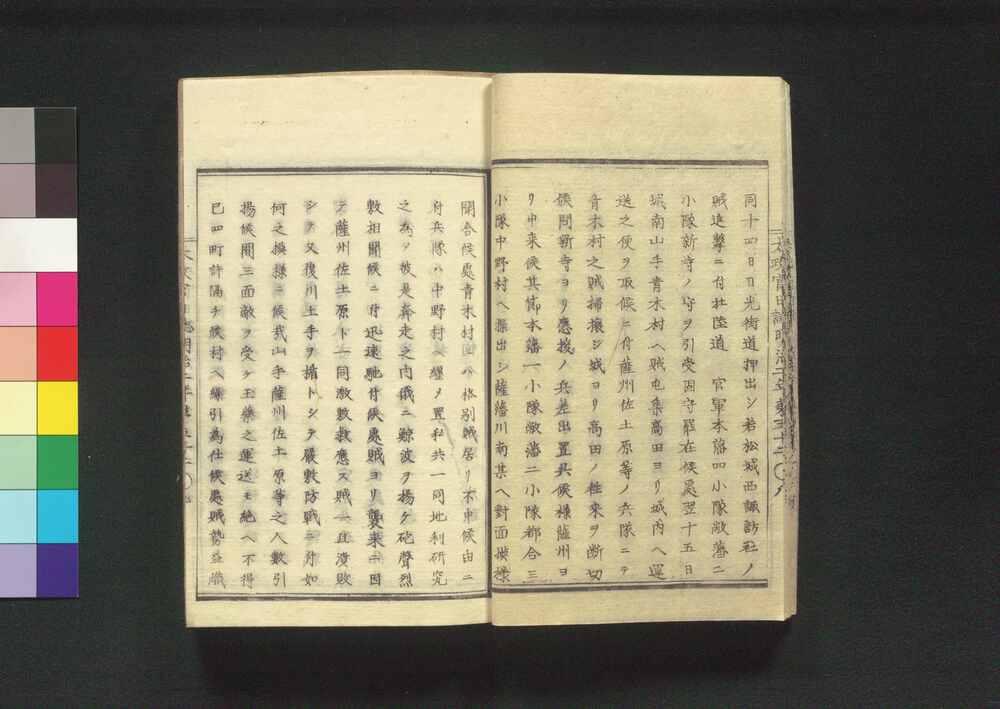 同十四日日光街道押出シ若松城西諏訪社ノ
賊進撃ニ付社陸道　官軍本藩四小隊敵藩ニ
小隊新寺ノ守ヲ引受固守罷在候処翌十五日
城南山手青木村ヘ賊屯集高田ヨリ城内ヘ運
送之便ヲ取候ニ付薩州佐土原等ノ兵隊ニテ
青木村之賊掃攘シ城ヨリ高田ノ往来ヲ断切
候間新寺ヨリ應援ノ兵差出置呉候様薩州ヨ
リ申来候其節本藩一小隊敵藩二小隊都合三
小隊中野村ヘ操出シ薩藩川南某ヘ對面模様
聞合候處青木村ハ格別賊居リ不申候由ニ
府兵隊ハ中野村ヘ纏メ置私共一同地利研究
之為ヲ彼是奔走之内俄ニ鯨波ヲ揚ケ砲聲烈
敷相聞候ニ付迅速馳付候處賊ヨリ襲来ニ因
テ薩州佐土原ト一同激敷救應ス賊一旦潰敗
シテ又復川土手ヲ楯トシテ嚴敷防戰ニ付如
何之模様ニ候哉山手薩州佐土原等之人數引
揚候間三面敵ヲ受テ玉藥之運送モ絶ヘ不得
已四町許隔チ候村ヘ繰引為仕候處賊勢益熾
太政官日誌明治二年第三十二